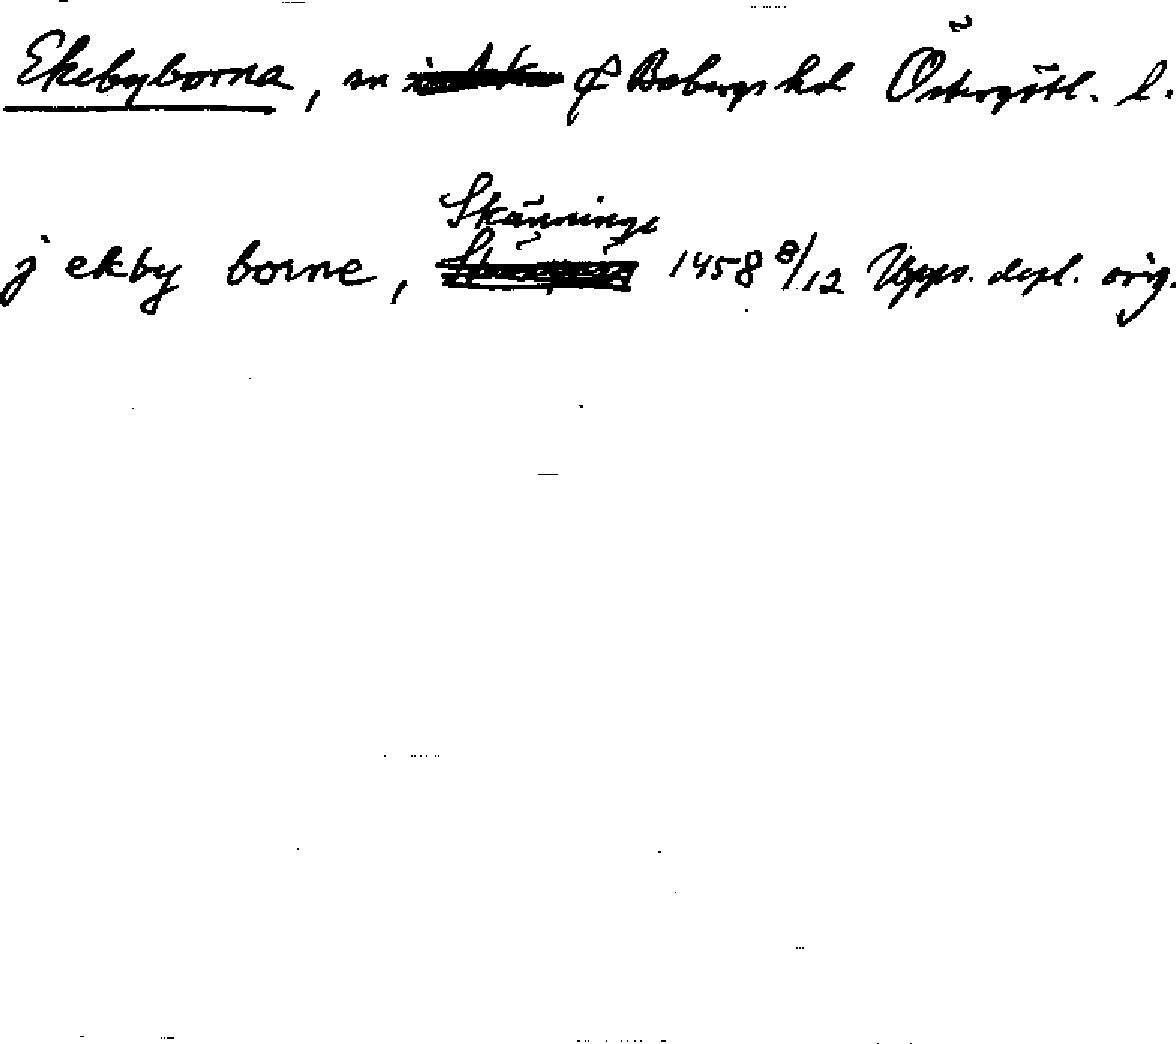 Ekebyborna, sn f Bobergs hd Östergötl. l.
Skänninge
j ekby borne, 1458 8/12 Upps. depl. orig.